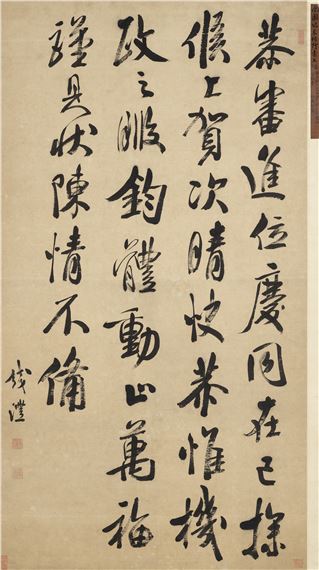 恭審進位慶同在己探
候上賀次晴快恭惟機
政之暇鈞體動止萬福
謹具狀陳情不備
錢灃